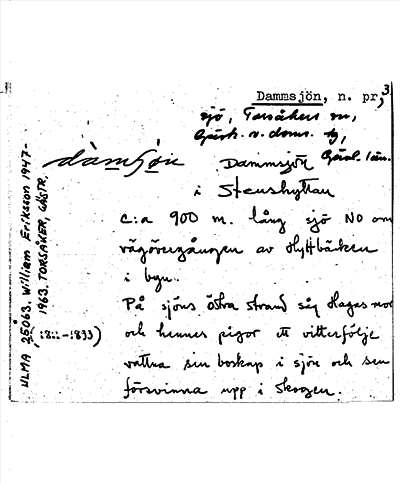 Dammsjön, n. pr, 3
sjö, Torsåkers sn,
Gästr. v. doms. tg,
Gävl. län.
dàmsjön Dammsjön
i Stenshyttan
C:a 900 m. lång sjö NO om
vägövergången av Hyttbäcken
i byn.
På sjöns östra strand såg Hagas mor
och hennes pigor ett vitterfölje
vattna sin boskap i sjön och sen
försvinna upp i skogen.
ULMA 25063. William Eriksson 1947-
1963. TORSÅKER, GÄSTR.
-1893)